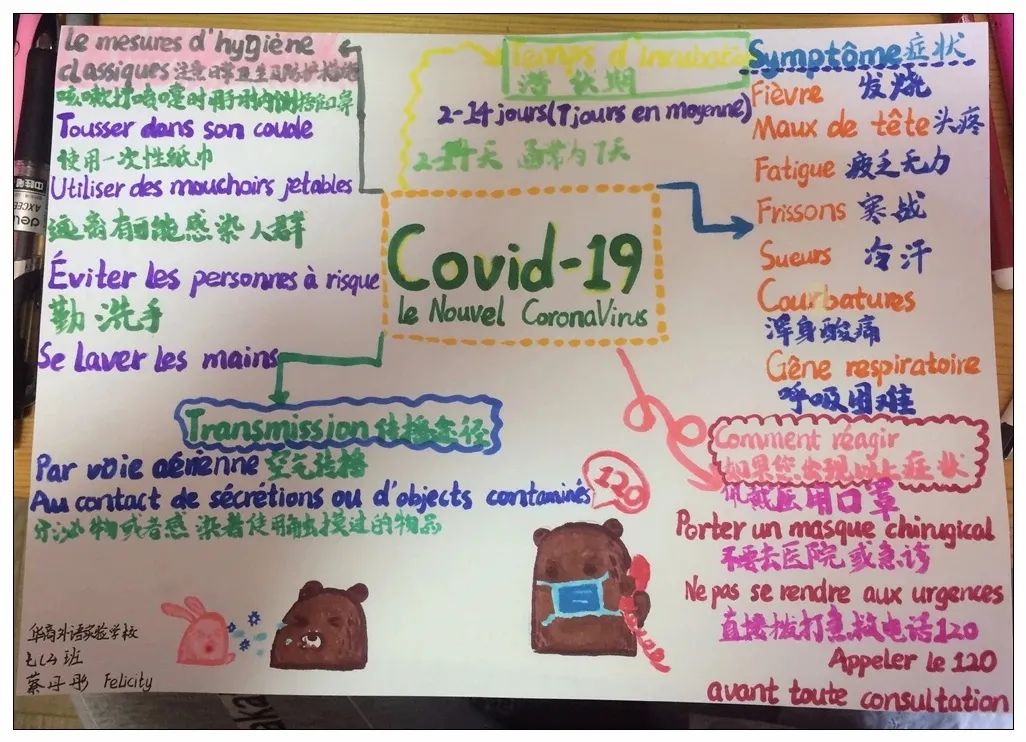 le mesures d'hygiène
classiques 注意日常卫生及防护措施
咳嗽打喷嚏时用手肘内侧捂住口鼻
Tousser dans son coude
使用一次性纸巾
Utiliser des mouchoirs jetables
远离有可能感染人群
Éviter les personnes à risque
勤洗手
Se Laver les mains
Temps d'incubation
潜伏期
2-14 jours (7 jours en moyenne)
2-14天 通常为7天
Covid-19
le Nouvel CoronaVirus
Symptôme 症状
Fièvre 发烧
Maux de tête 头疼
Fatigue 疲乏无力
Frissons 寒战
Sueurs 冷汗
Courbatures
浑身酸痛
Gêne respiratoire
呼吸困难
Transmission 传播途径
Par voie aérienne 空气传播
Au contact de sécrétions ou d'objects contaminés
分泌物或者感染者使用触摸过的物品
120
Comment réagir
如果您出现以上症状
佩戴医用口罩
Porter un masque chirugical
不要去医院或急诊
Ne pas se rendre aux urgences
直接拨打急救电话120
Appeler le 120
avant toute consultation
华商外语实验学校
Felicity
deli